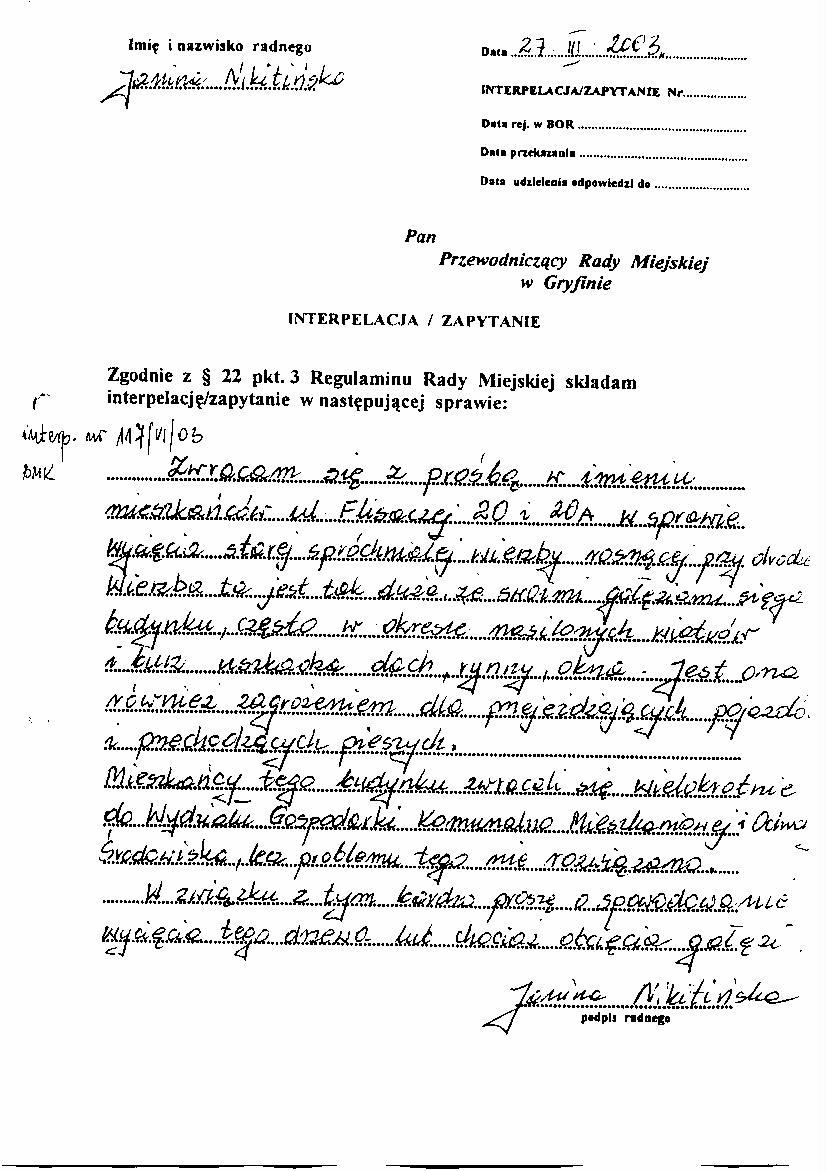 Imię i nazwisko radnego
Janina Nikitińska
Data 27 III 2003.
INTERPELACJA/ZAPYTANIE Nr
Data rej. w BOR
Data przekazania
Data udzielenia odpowiedzi do
Pan
Przewodniczący Rady Miejskiej
w Gryfinie
INTERPELACJA / ZAPYTANIE
Zgodnie z § 22 pkt. 3 Regulaminu Rady Miejskiej składam
interpelację/zapytanie w następującej sprawie:
interp. nr 117/VI/03
BMK
Zwracam się z prośbą w imieniu
mieszkańców ul Flisaczej 20 i 20A w sprawie
wycięcia starej spróchniałej wierzby rosnącej przy drodze
Wierzba ta jest tak duża, że swoimi gałęziami sięga
budynku, często w okresie nasilonych wiatrów
i burz uszkadza dach, rynny, okna. Jest ona
również zagrożeniem dla przejeżdżających pojazdó
i przechodzących pieszych.
Mieszkańcy tego budynku zwracali się wielokrotnie
do Wydziału Gospodarki Komunalno Mieszkaniowej i Ochro
Środowiska, lecz problemu tego nie rozwiązano.
W związku z tym bardzo proszę o spowodowanie
wycięcia tego drzewa lub chociaż obcięcia gałęzi.
Janina Nikitińska
podpis radnego